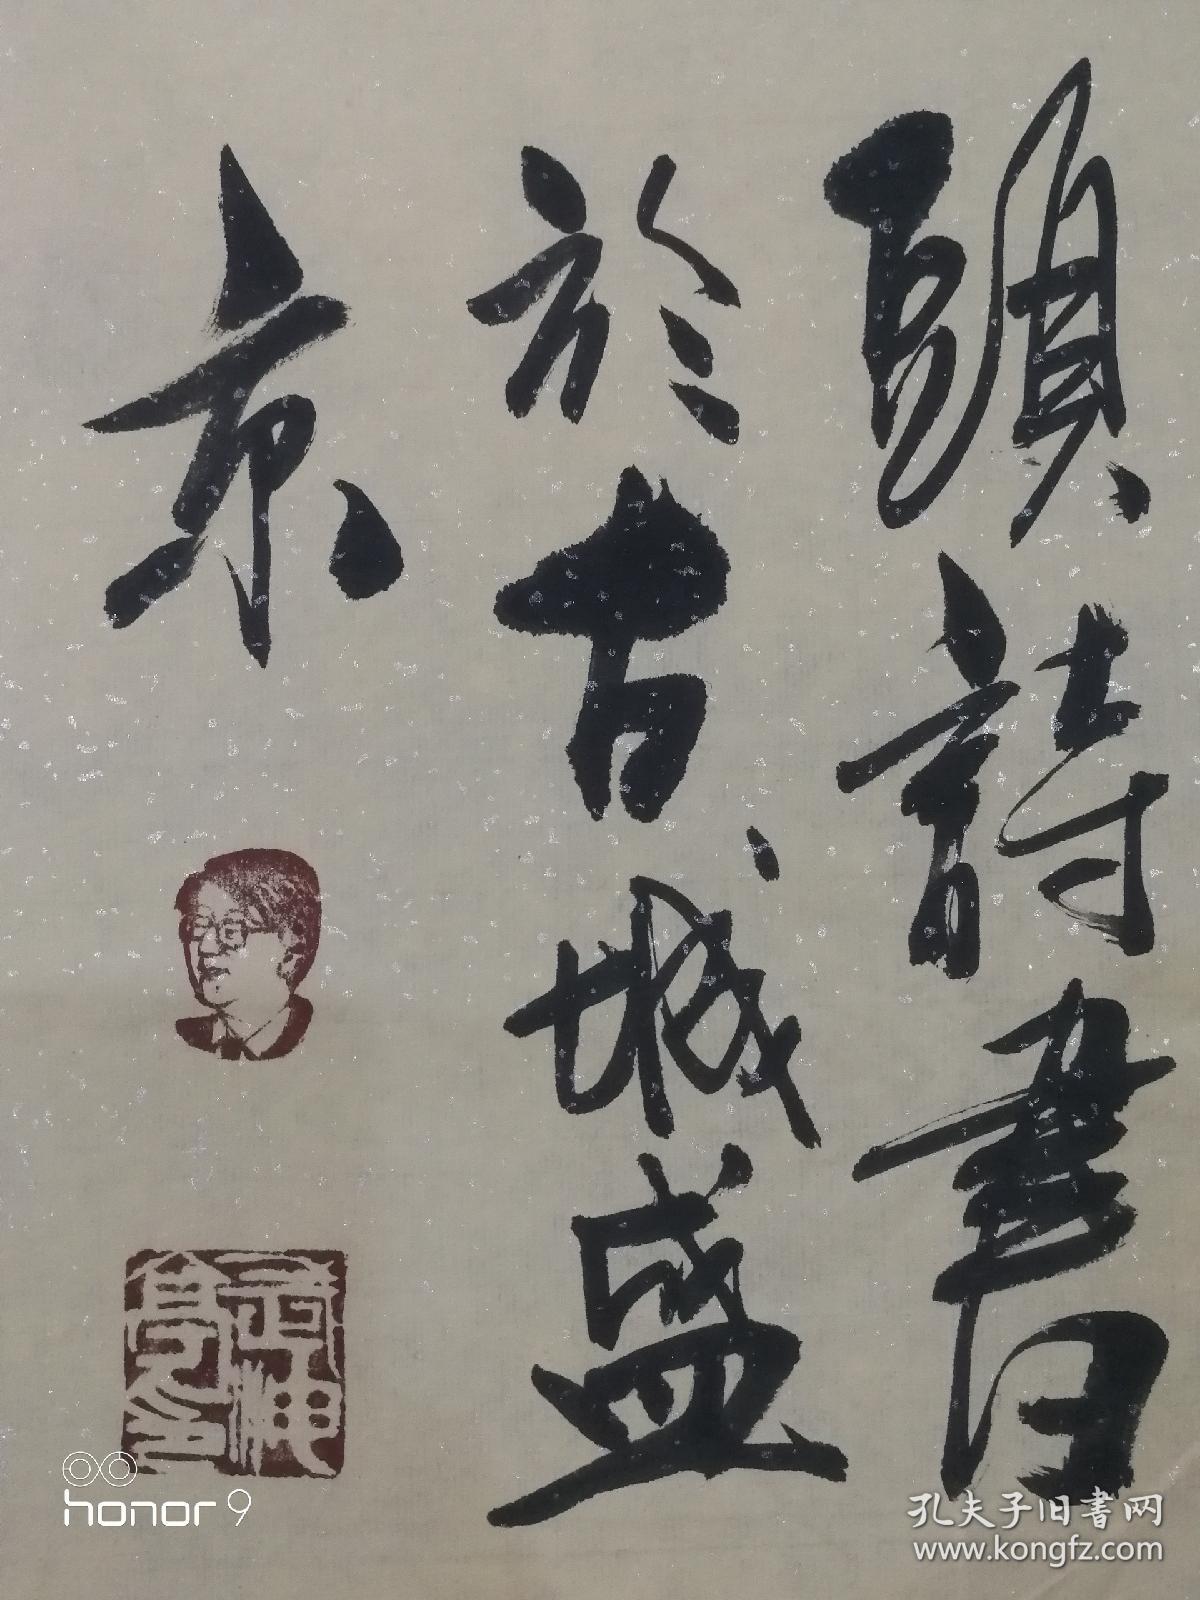 頭詩書
於古城盛
京
honor 9
孔夫子旧書网
www.kongfz.com